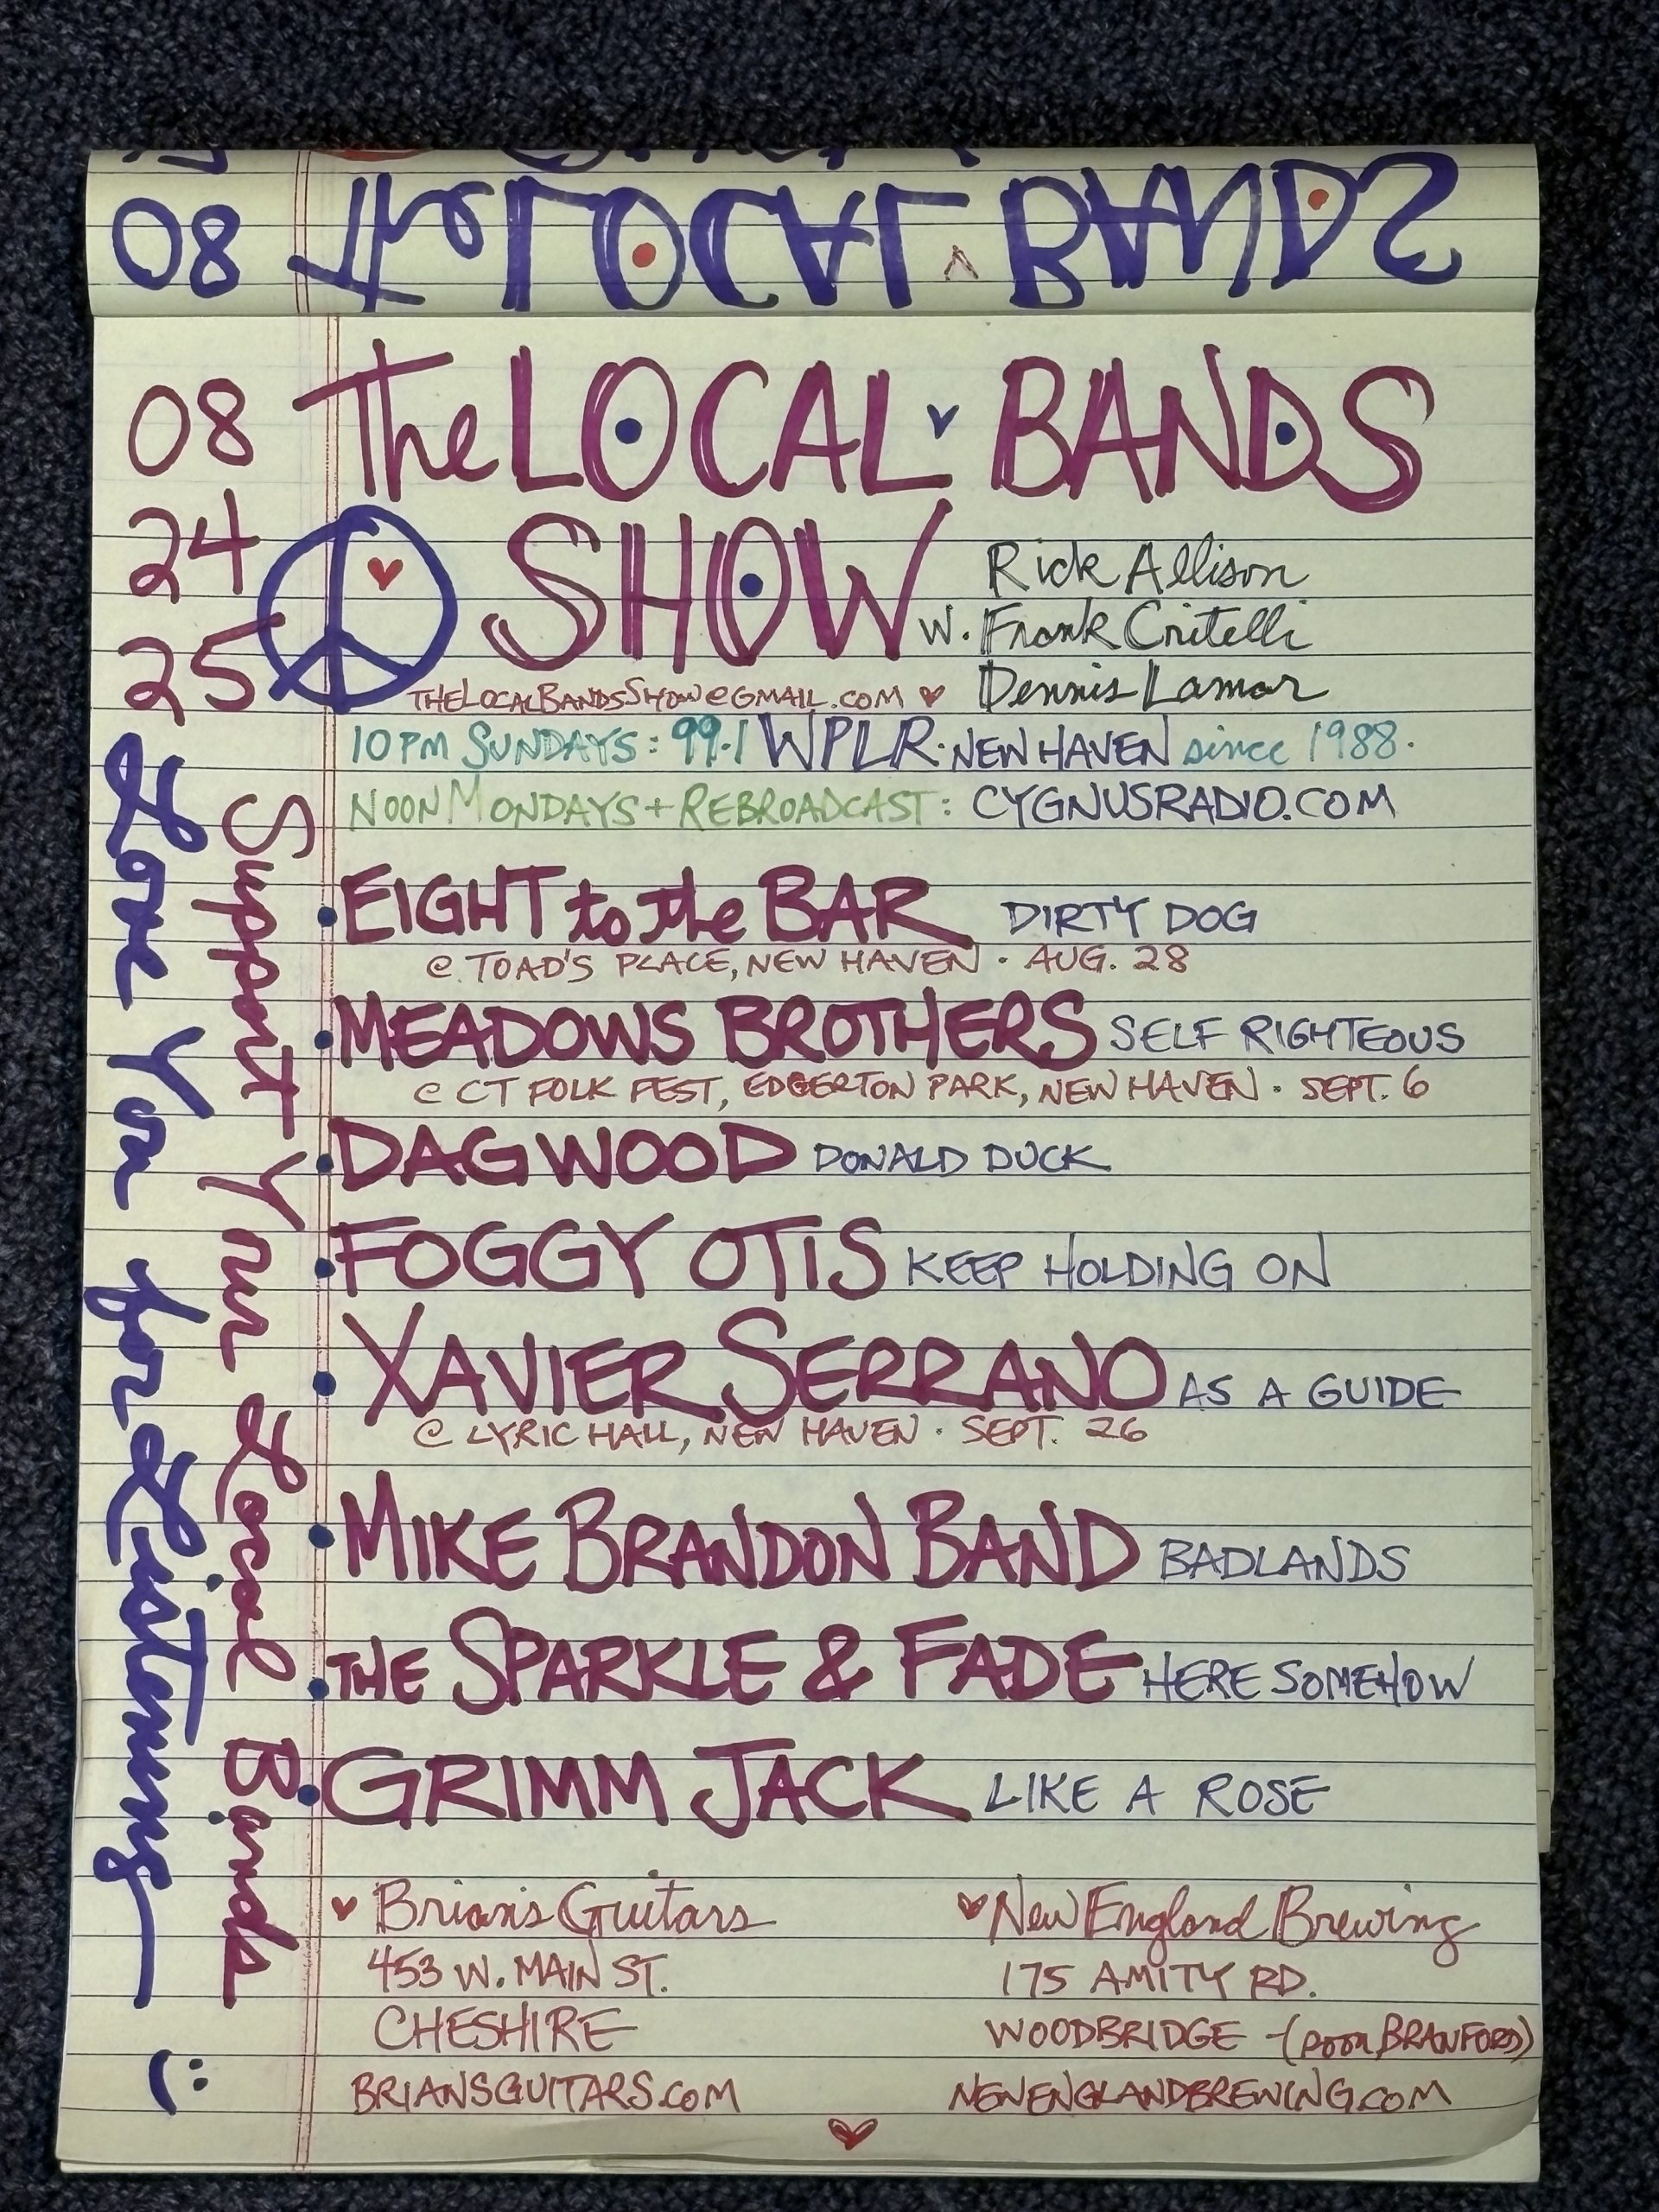 08 The LOCAL BANDS
08 The LOCAL BANDS
24 SHOW w. Rick Allison
Frank Critelli
25 Dennis Lamar
THELOCALBANDSSHOW@GMAIL.COM
10 PM SUNDAYS: 99.1 WPLR · NEW HAVEN since 1988.
NOON MONDAYS + REBROADCAST: CYGNUSRADIO.COM
• EIGHT to the BAR DIRTY DOG
@ TOAD'S PLACE, NEW HAVEN · AUG. 28
• MEADOWS BROTHERS SELF RIGHTEOUS
@ CT FOLK FEST, EDGERTON PARK, NEW HAVEN · SEPT. 6
• DAGWOOD DONALD DUCK
• FOGGY OTIS KEEP HOLDING ON
• XAVIER SERRANO AS A GUIDE
@ LYRIC HALL, NEW HAVEN · SEPT. 26
• MIKE BRANDON BAND BADLANDS
• THE SPARKLE & FADE HERE SOMEHOW
• GRIMM JACK LIKE A ROSE
Support Your Local Bands
Love You for Listening :)
Brian's Guitars
453 W. MAIN ST.
CHESHIRE
BRIANSGUITARS.COM
New England Brewing
175 AMITY RD.
WOODBRIDGE (BRANFORD)
NEWENGLANDBREWING.COM